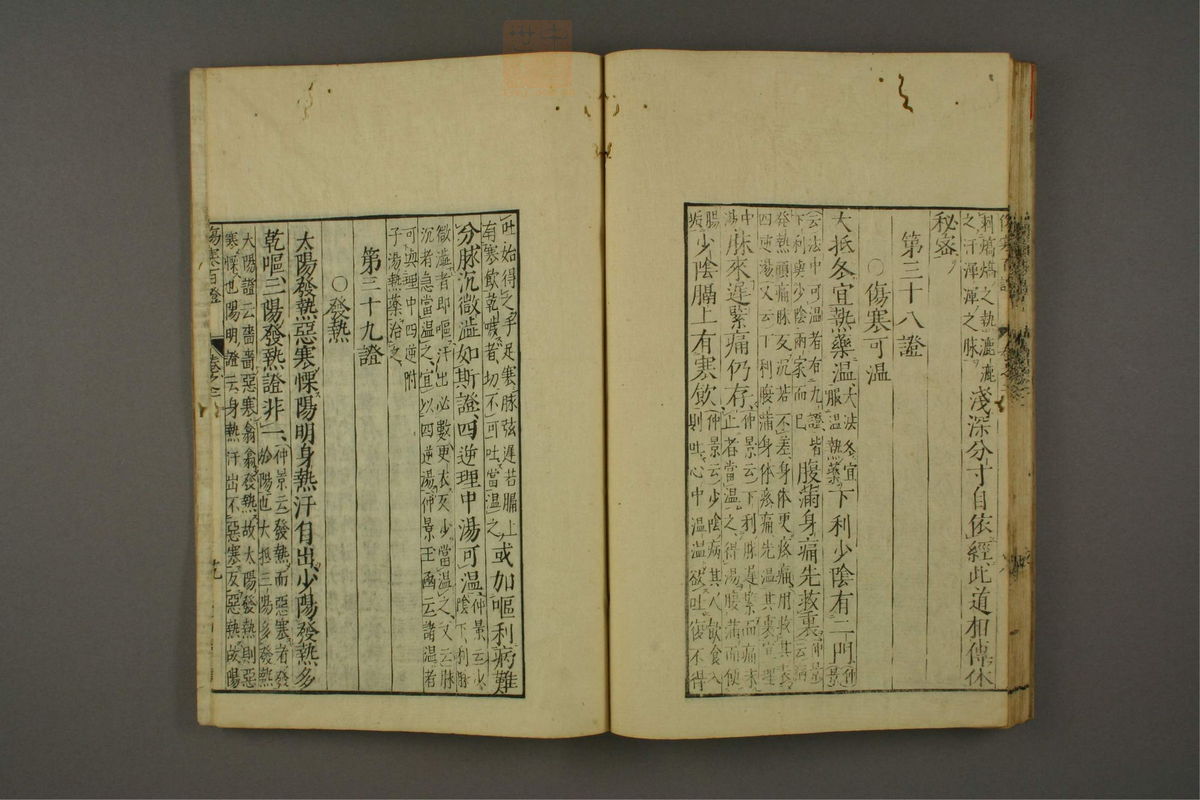 刺熇熇之熱漉漉
之汗渾渾之脉
淺深分寸自依經此道相傳休
秘密
第三十八證
○傷寒可温
大抵冬宜熱藥温
大法冬宜
服温熱藥
下利少陰有二門
仲景
云法中可温者有九證皆
下利與少陰兩家而已
腹滿身痛先救裏
仲景
云病
發熱頭痛脉反沉若不差身体更疼痛用救其裏
四逆湯又云下利腹滿身体疼痛先温其裏宜四
脉來遲緊痛仍存
仲景云下利脉遲緊而痛未
止者當温之得湯腹滿而便
少陰膈上有寒飲
仲景云少陰病其人飲食入
則吐心中温温欲吐復不得
吐始得之手足寒脉弦遲若膈上
有寒飲乾嘔者切不可吐當温之
或加嘔利病難
分脉沉微澁如斯證四逆理中湯可温
仲景云少
陰下利脉
微澁者即嘔汗出必數更衣反少當温之又云脉
沉者急當温之宜以四逆湯仲景玉函云諸温者
可與理中四逆附
子湯熱藥治之
第三十九證
○發熱
太陽發熱惡寒慄陽明身熱汗自出少陽發熱多
乾嘔三陽發熱證非一
仲景云發熱而惡寒者發
於陽也大抵三陽多發熱
太陽證云嗇嗇惡寒翕翕發熱故太陽發熱則惡
寒慄也陽明證云身熱汗出不惡寒反惡熱故陽
傷寒百證